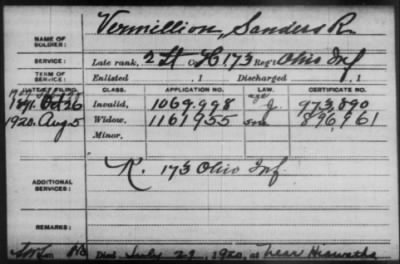 NAME OF SOLDIER: Vermillion, Sanders R.
SERVICE: Late rank, 2 Lt. Co. H 173 Reg't Ohio Inf
TERM OF SERVICE: Enlisted , 1 Discharged , 1
DATE OF FILING. CLASS. APPLICATION NO. LAW. CERTIFICATE NO.
1891. Oct 26 Invalid, 1069.998 973,890
1920. Aug 5 Widow, 1161955 896,961
Minor,
ADDITIONAL SERVICES: K. 173 Ohio Inf.
REMARKS:
Died July 29, 1920, at near Hiawatha